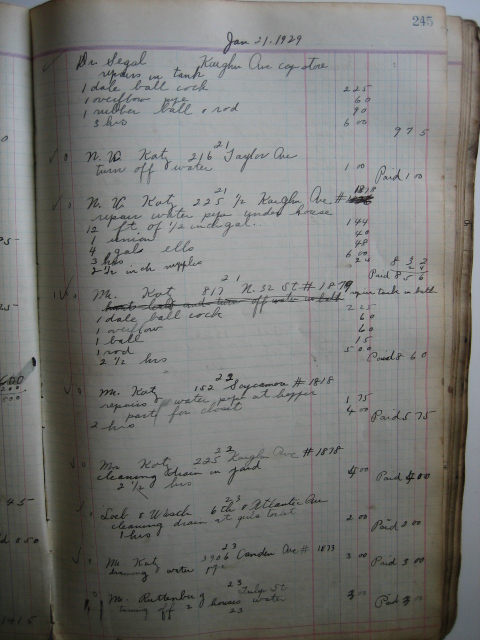 245
Jan 21, 1929
Dr Segal Kaighn Ave cog store
repairs in tank
1 dale ball cock 2 25
1 overflow pipe 60
1 rubber ball & rod 90
3 hrs 6 00
9 75
21
N. W. Katz 216 Taylor Ave
turn off water 1 00 Paid 1 00
21
N. W. Katz 225 1/2 Kaighn Ave # 1818
repair water pipe under house
12 ft. of 1/2 inch gal. 144
1 union 40
4 galv ells 48
3 hrs 6 00
2 1/2 inch nipples 24
8 32
Paid 8 56
21
Mr. Katz 817 N. 32 St # 1879
repair tank in bath
1 dale ball cock 2 25
1 overflow 60
1 ball 60
1 rod 15
2 1/2 hrs 5 00
Paid 8 60
22
Mr. Katz 152 Sycamore # 1818
repairs water pipe at hopper
parts for closet 1 75
2 hrs 4 00
Paid 5 75
22
Mr Katz 225 Kaighn Ave # 1818
cleaning drain in yard
2 1/2 hrs 4 00 Paid 4 00
23
6th & Atlantic Ave
cleaning drain at
1 hrs 2 00 Paid 2 00
23
Mr. Katz 3926 Camden Ave # 1873
water pipe 3 00 Paid 3 00
23
Mr. Ruttenberg Tulip St
turning off 2 houses water 3 00 Paid 3 00
23